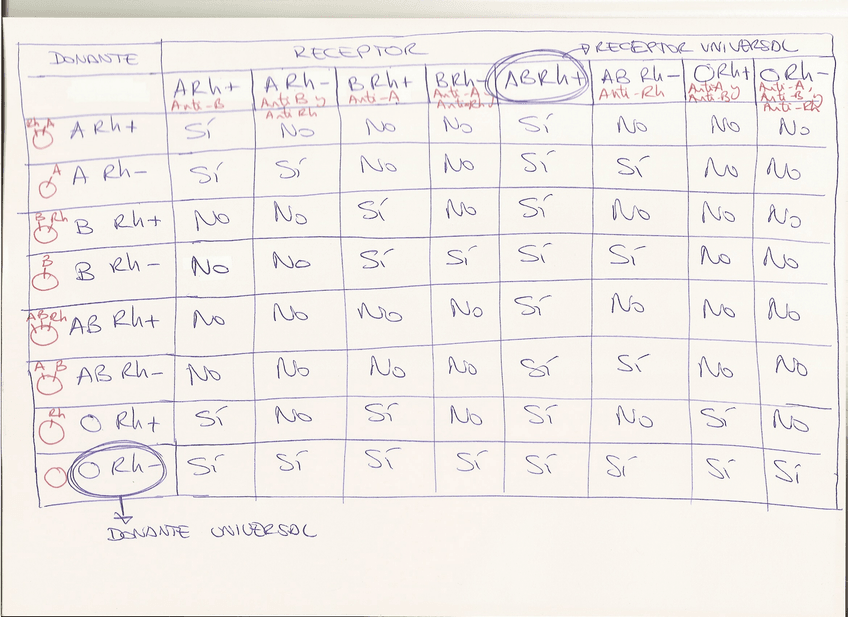 DONANTE RECEPTOR → RECEPTOR UNIVERSAL
A Rh+ A Rh- B Rh+ B Rh- AB Rh+ AB Rh- O Rh+ O Rh-
Anti-B Anti B y Anti-A Anti-A y Anti-Rh Anti A y Anti-A,
Anti Rh Anti-Rh Anti-B Anti-B y
Anti-Rh
Rh A A Rh+ Sí No No No Sí No No No
A A Rh- Sí Sí No No Sí Sí No No
B Rh B Rh+ No No Sí No Sí No No No
B B Rh- No No Sí Sí Sí Sí No No
A B Rh AB Rh+ No No No No Sí No No No
A B AB Rh- No No No No Sí Sí No No
Rh O Rh+ Sí No Sí No Sí No Sí No
O Rh- Sí Sí Sí Sí Sí Sí Sí Sí
DONANTE UNIVERSAL